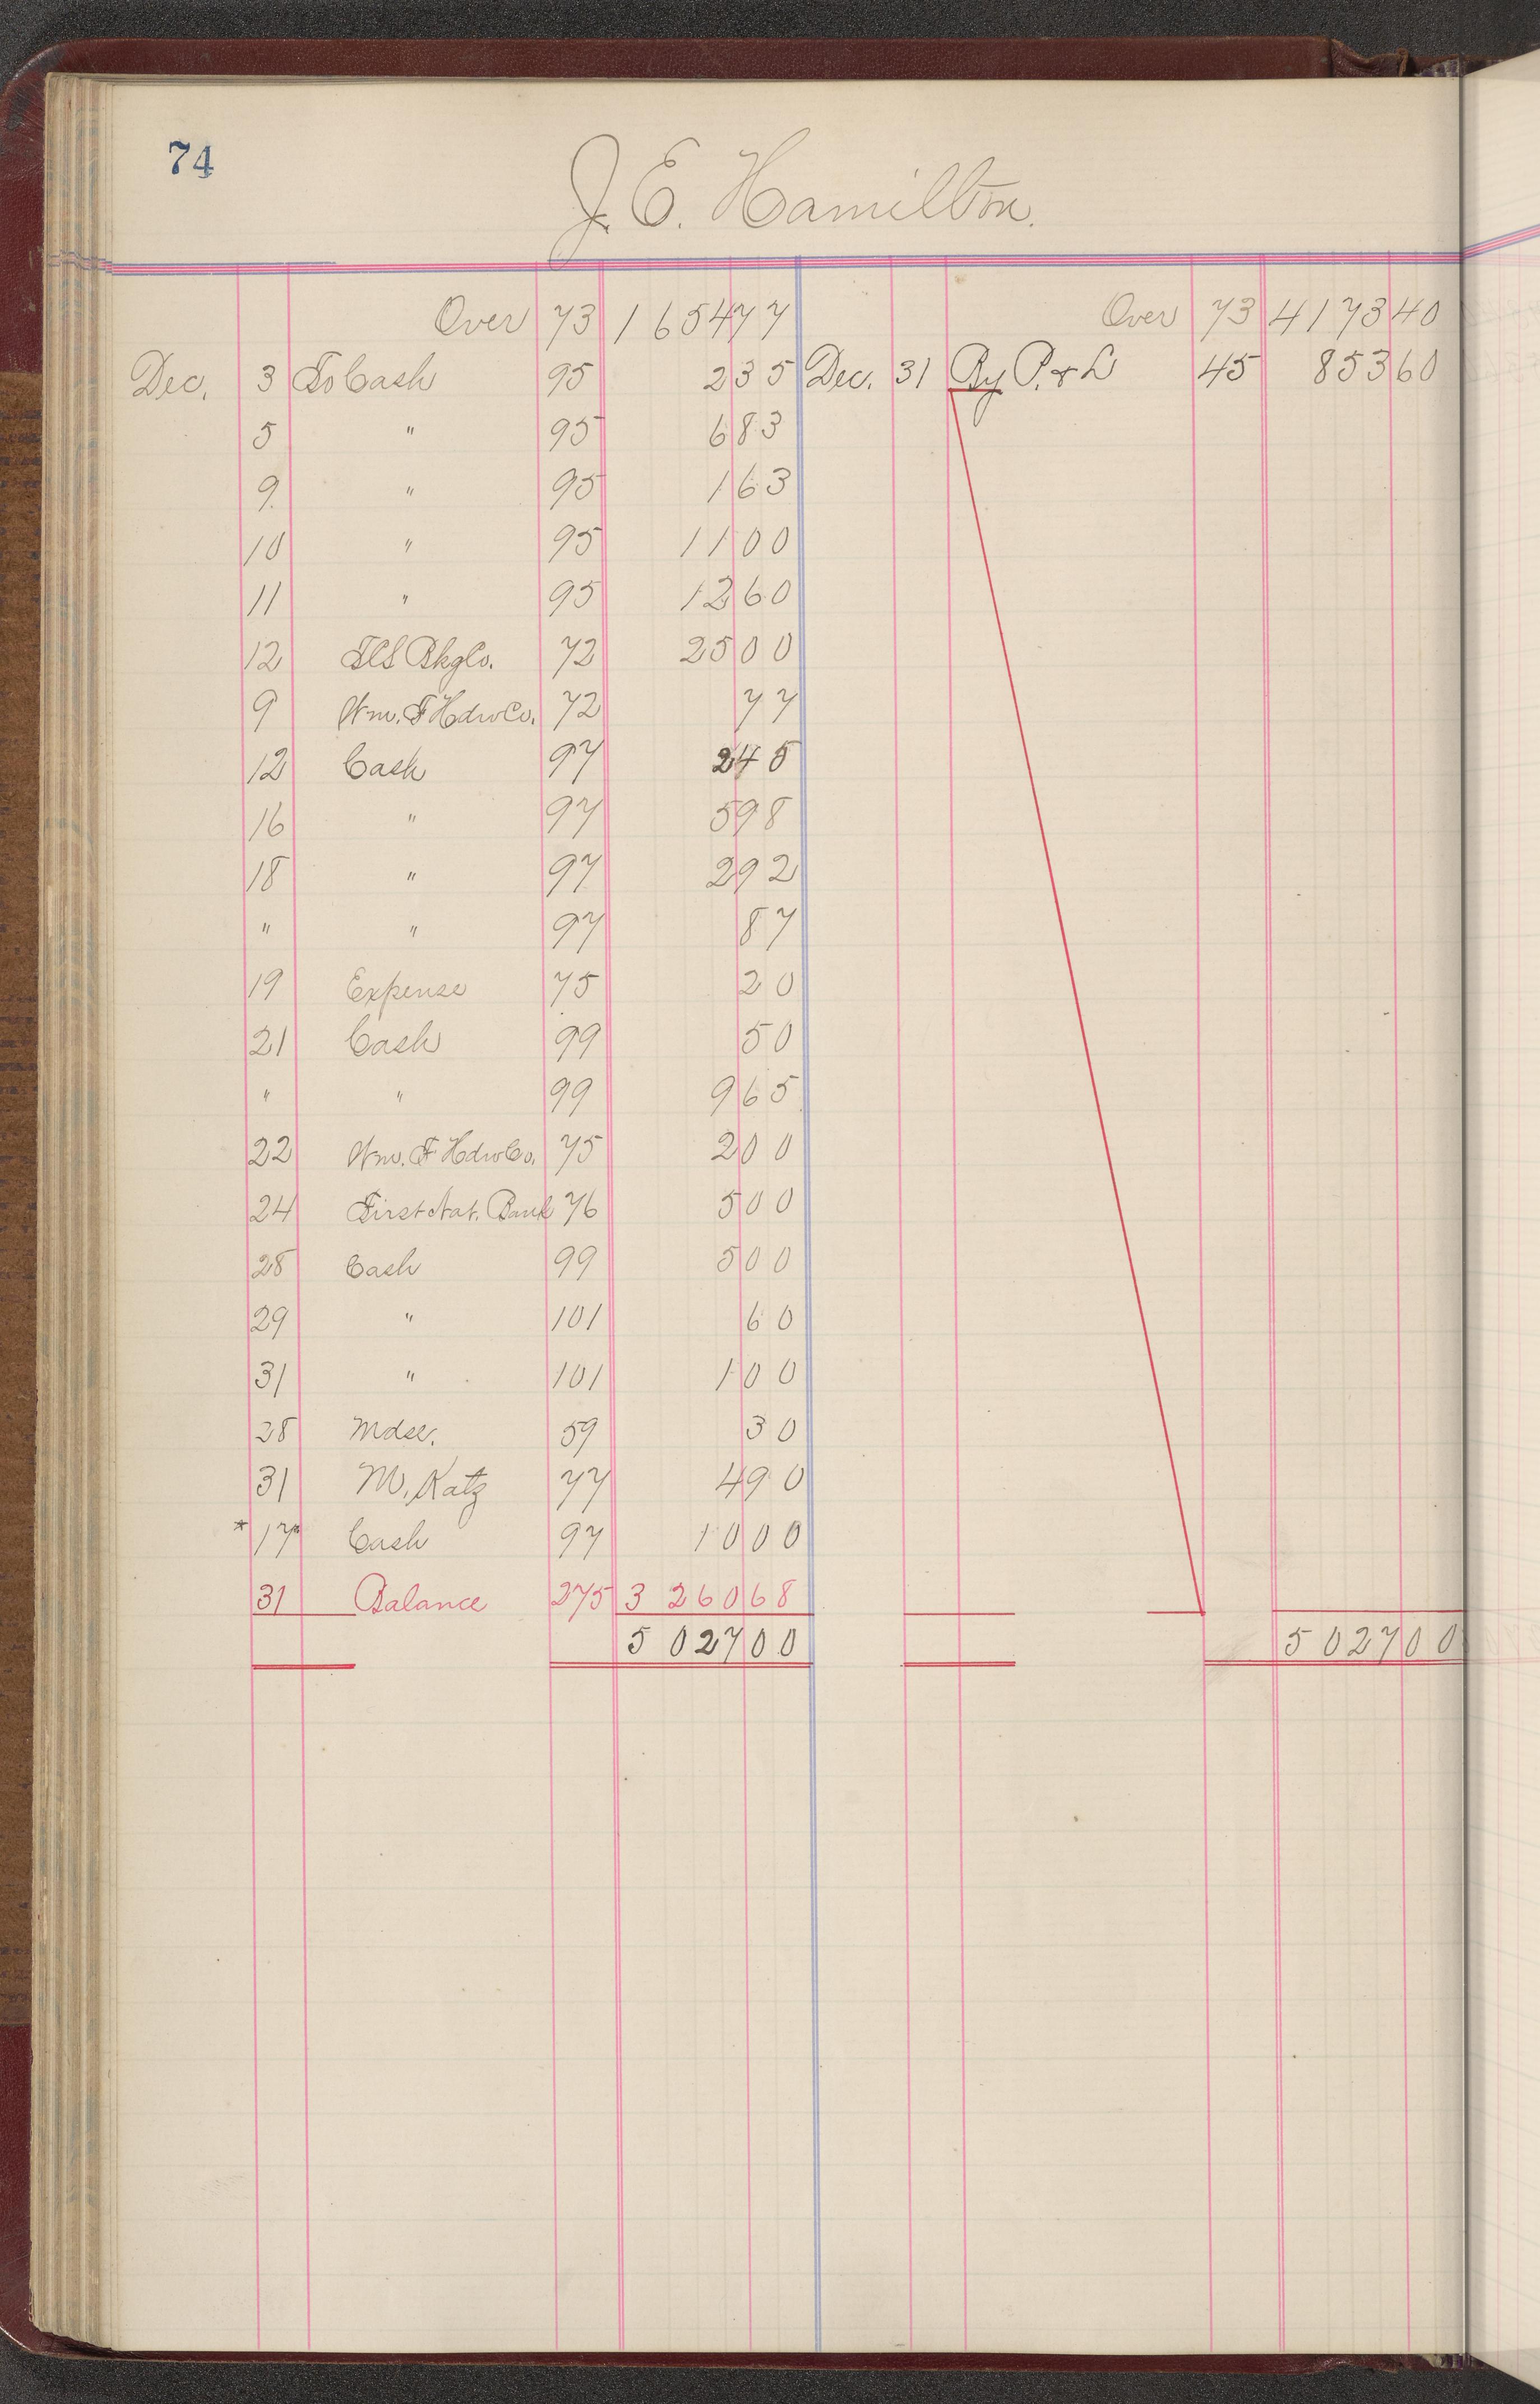 74
J. E. Hamilton.
Over 73 1 654 77 Over 73 4 173 40
Dec. 3 To Cash 95 2 35 Dec. 31 By P. & L 45 853 60
5 " 95 6 83
9 " 95 1 63
10 " 95 11 00
11 " 95 12 60
12 72 25 00
9 Wm. F Hdw Co. 72 77
12 Cash 97 2 45
16 " 97 5 98
18 " 97 2 92
" " 97 87
19 Expense 75 20
21 Cash 99 50
" " 99 9 65
22 Wm. F Hdw Co. 75 2 00
24 First Nat. Bank 76 5 00
28 Cash 99 5 00
29 " 101 60
31 " 101 1 00
28 Mdse. 59 30
31 M. Katz 77 4 90
* 17 Cash 97 10 00
31 Balance 275 3 260 68
5 027 00 5 027 00